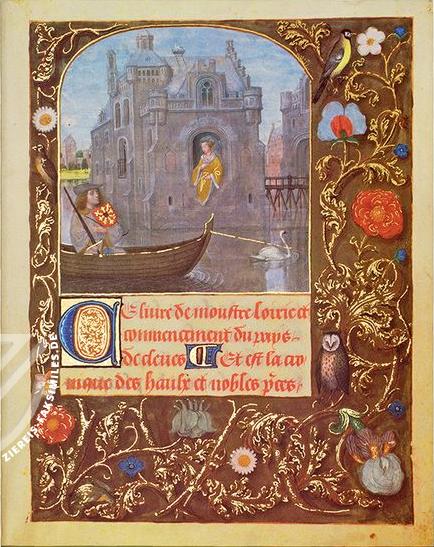 Ce liure de monstre lorine et
commencement du pays
de cleues Et est la cro
nique des haulx et nobles prĩces
ZIEREIS-FAKSIMILES.DE